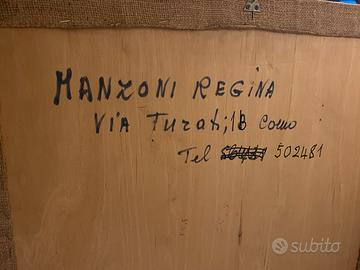 MANZONI REGINA
VIA Turati, 18 Como
Tel 502481
subito